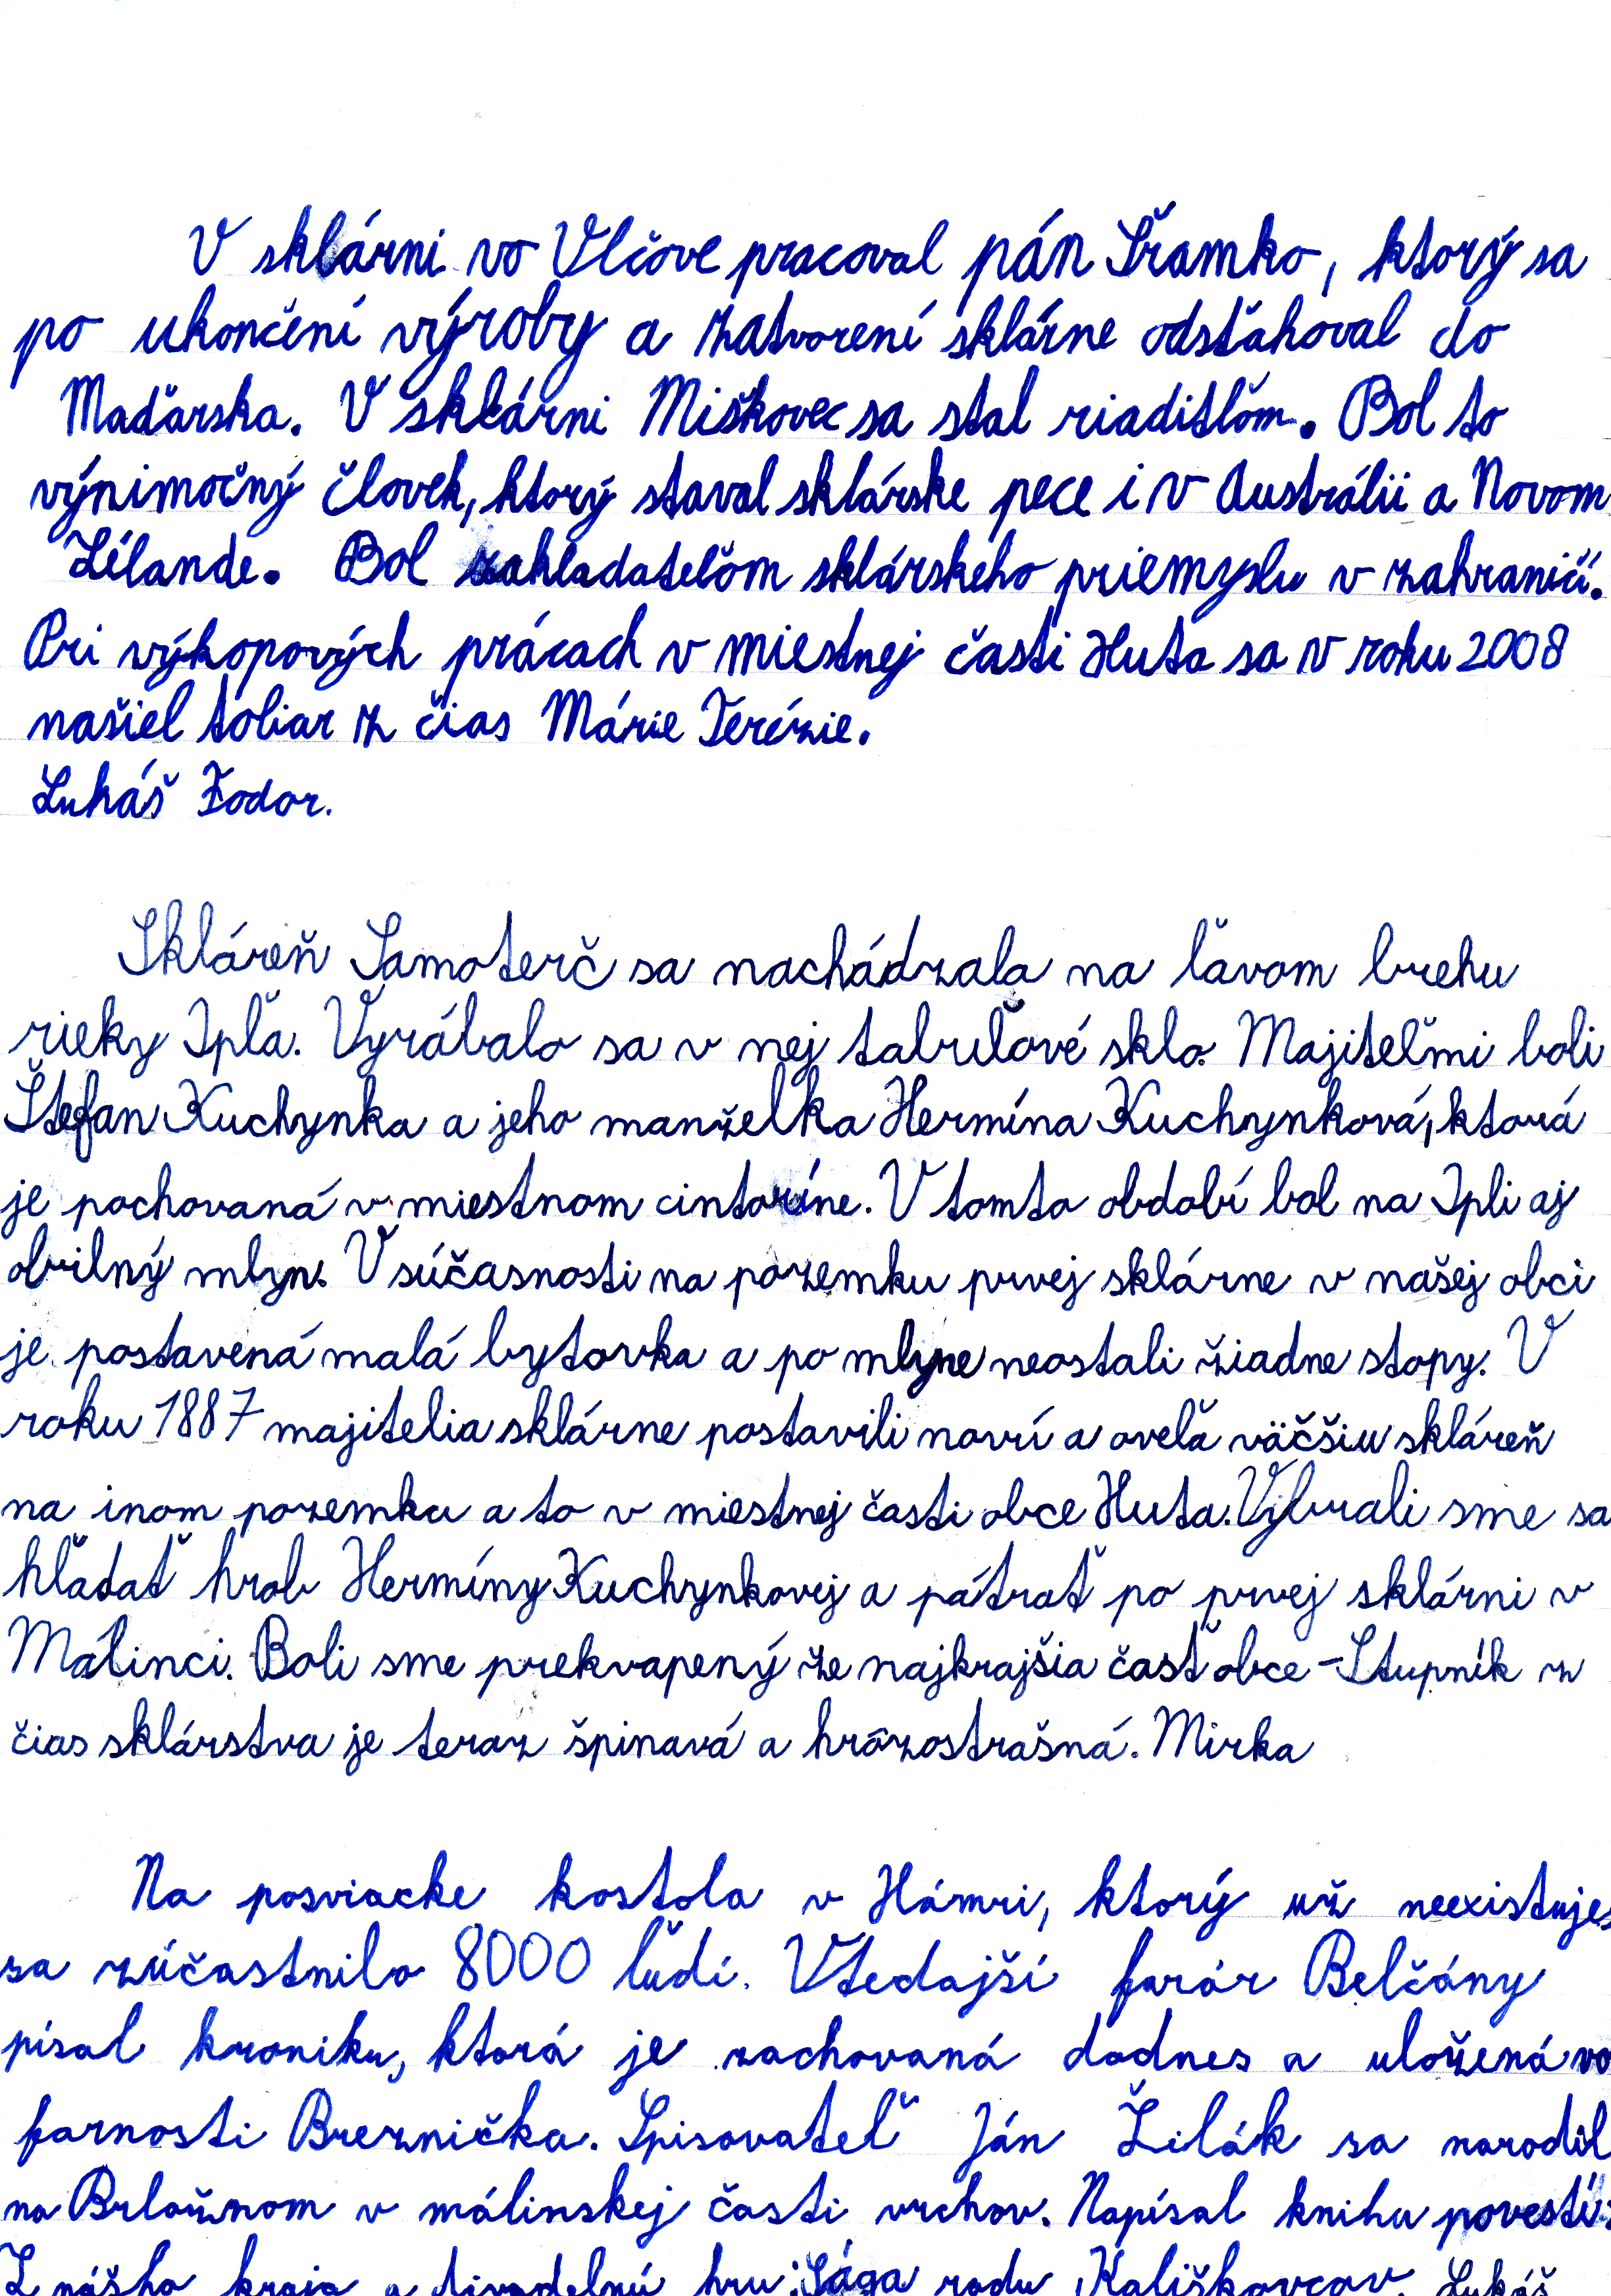 V sklárni vo Vlčove pracoval pán Šramko, ktorý sa
po ukončení výroby a zatvorení sklárne odsťahoval do
Maďarska. V sklárni Miškovec sa stal riaditľom. Bol to
výnimočný človek, ktorý staval sklárske pece i v Austrálii a Novom
Zélande. Bol zakladateľom sklárskeho priemyslu v zahraničí.
Pri výkopových prácach v miestnej časti Huta sa v roku 2008
našiel toliar z čias Márie Terézie.
Lukáš Fodor.
Skláreň Samoterč sa nachádzala na ľavom brehu
rieky Ipľa. Vyrábalo sa v nej tabuľové sklo. Majiteľmi boli
Štefan Kuchynka a jeho manželka Hermína Kuchynková, ktorá
je pochovaná v miestnom cintoríne. V tomto období bol na Ipli aj
obilný mlyn. V súčasnosti na pozemku prvej sklárne v našej obci
je postavená malá bytovka a po mlyne neostali žiadne stopy. V
roku 1887 majitelia sklárne postavili noví a oveľa väčšiu skláreň
na inom pozemku a to v miestnej časti obce Huta. Vybrali sme sa
hľadať hrob Hermíny Kuchynkovej a pátrať po prvej sklárni v
Málinci. Boli sme prekvapený že najkrajšia časť obce - Stupník z
čias sklárstva je teraz špinavá a hrôzostrašná. Mirka
Na posviacke kostola v Hámri, ktorý už neexistuje,
sa zúčastnilo 8000 ľudí. Vtedajší farár Belčány
písal kroniku, ktorá je zachovaná dodnes a uložená vo
farnosti Breznička. Spisovateľ Ján Žilák sa narodil
na Brložnom v málinskej časti vrchov. Napísal knihu povestí:
Z nášho kraja a divadelnú hru: Sága rodu Kališkovcov. Lukáš